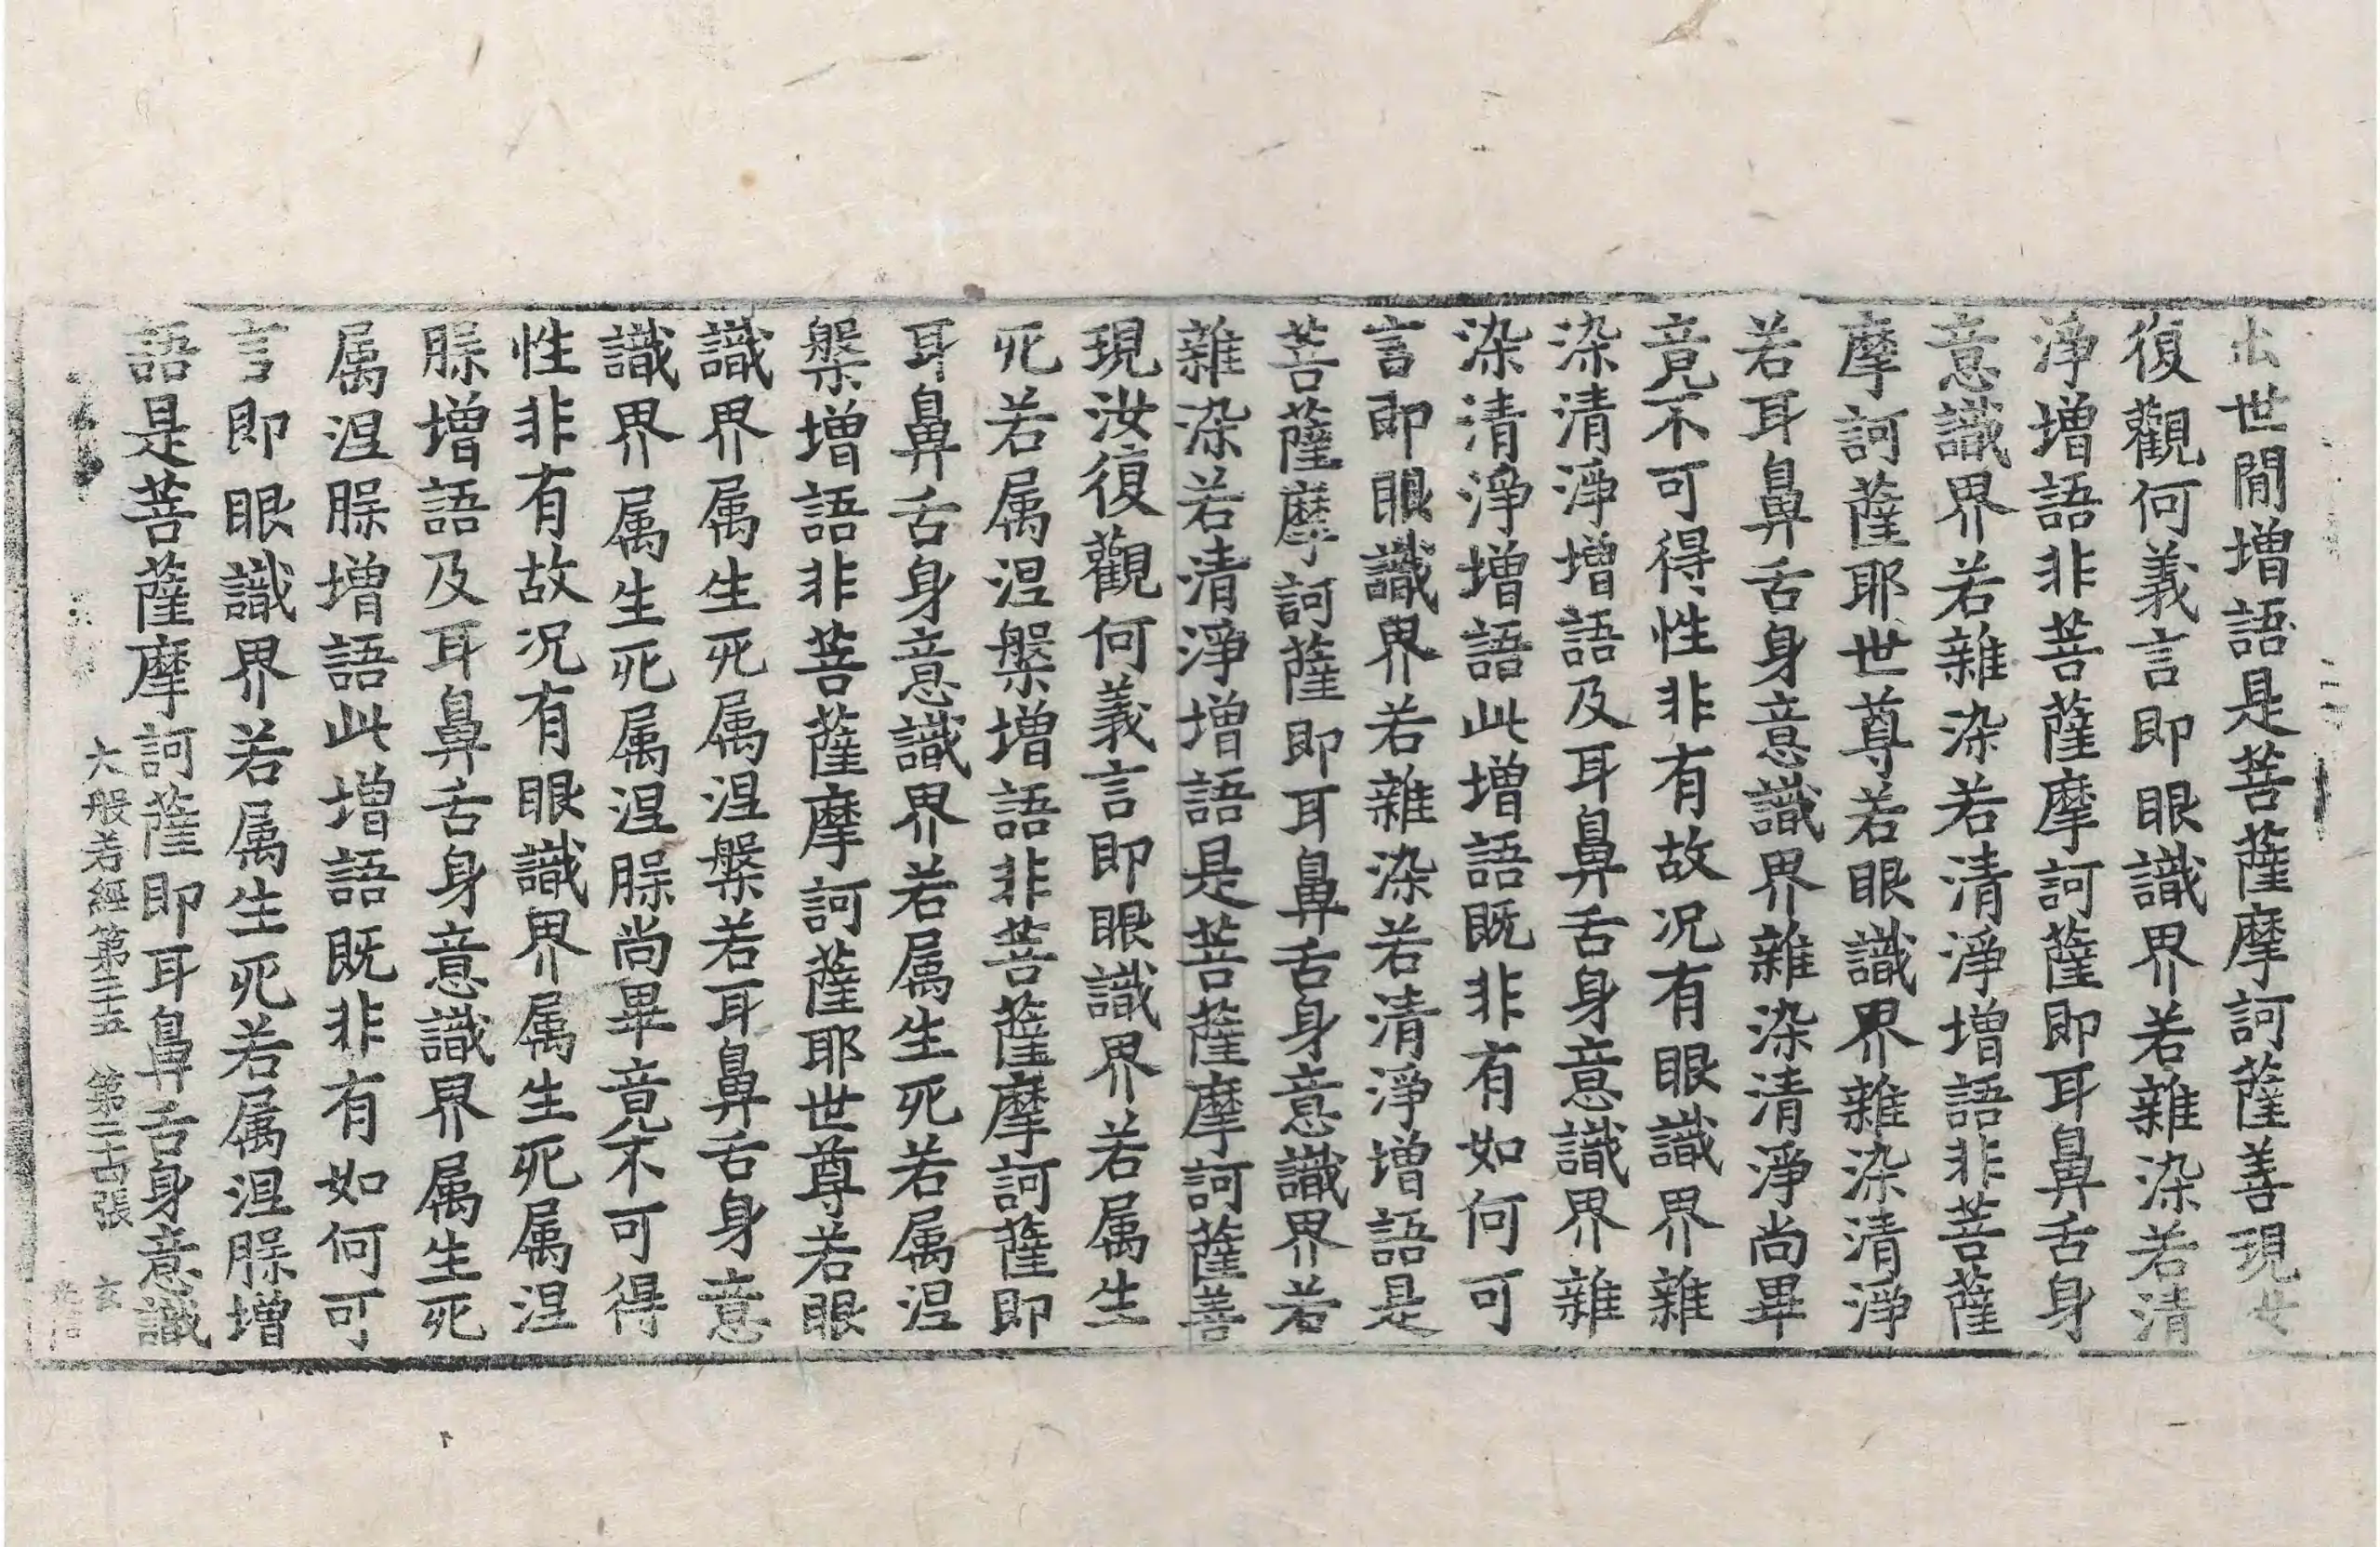 出世間增語是菩薩摩訶薩善現汝
復觀何義言即眼識界若雜染若清
淨增語非菩薩摩訶薩即耳鼻舌身
意識界若雜染若清淨增語非菩薩
摩訶薩耶世尊若眼識界雜染清淨
若耳鼻舌身意識界雜染清淨尚畢
竟不可得性非有故况有眼識界雜
染清淨增語及耳鼻舌身意識界雜
染清淨增語此增語既非有如何可
言即眼識界若雜染若清淨增語是
菩薩摩訶薩即耳鼻舌身意識界若
雜染若清淨增語是菩薩摩訶薩善
現汝復觀何義言即眼識界若属生
死若属涅槃增語非菩薩摩訶薩即
耳鼻舌身意識界若属生死若属涅
槃增語非菩薩摩訶薩耶世尊若眼
識界属生死属涅槃若耳鼻舌身意
識界属生死属涅槃尚畢竟不可得
性非有故况有眼識界属生死属涅
槃增語及耳鼻舌身意識界属生死
属涅槃增語此增語既非有如何可
言即眼識界若属生死若属涅槃增
語是菩薩摩訶薩即耳鼻舌身意識
大般若經第三十五 第二十古張 玄